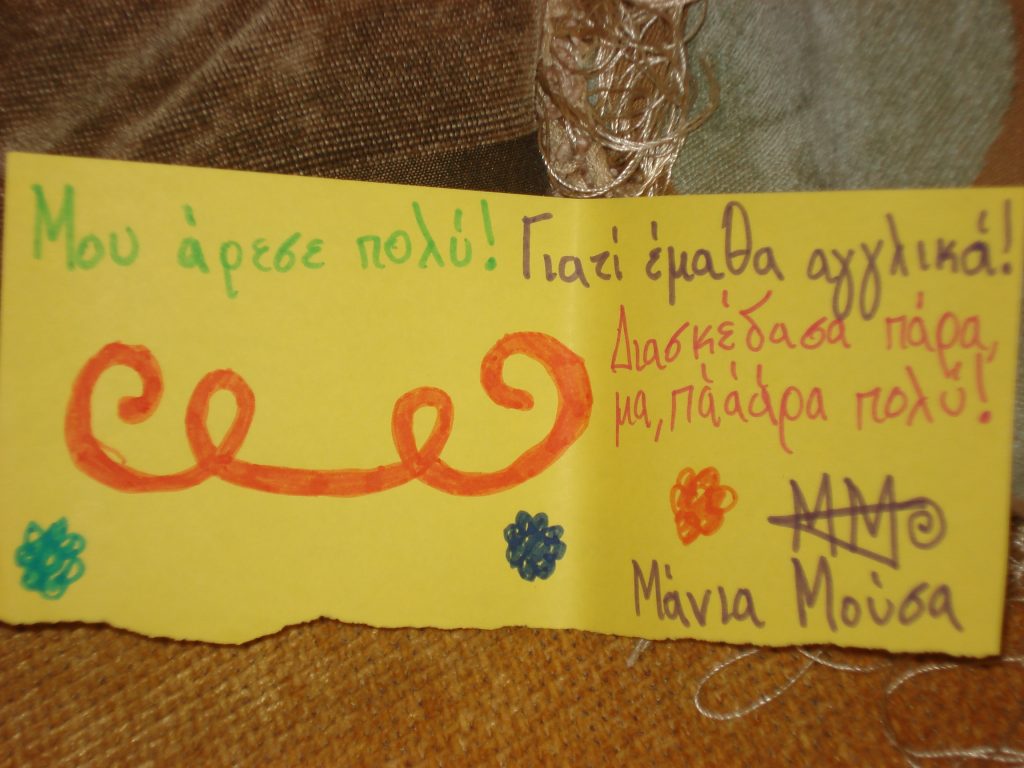 Μου άρεσε πολύ! Γιατί έμαθα αγγλικά!
Διασκέδασα πάρα,
μα, πάάάρα πολύ!
ΜΜ
Μάνια Μούσα